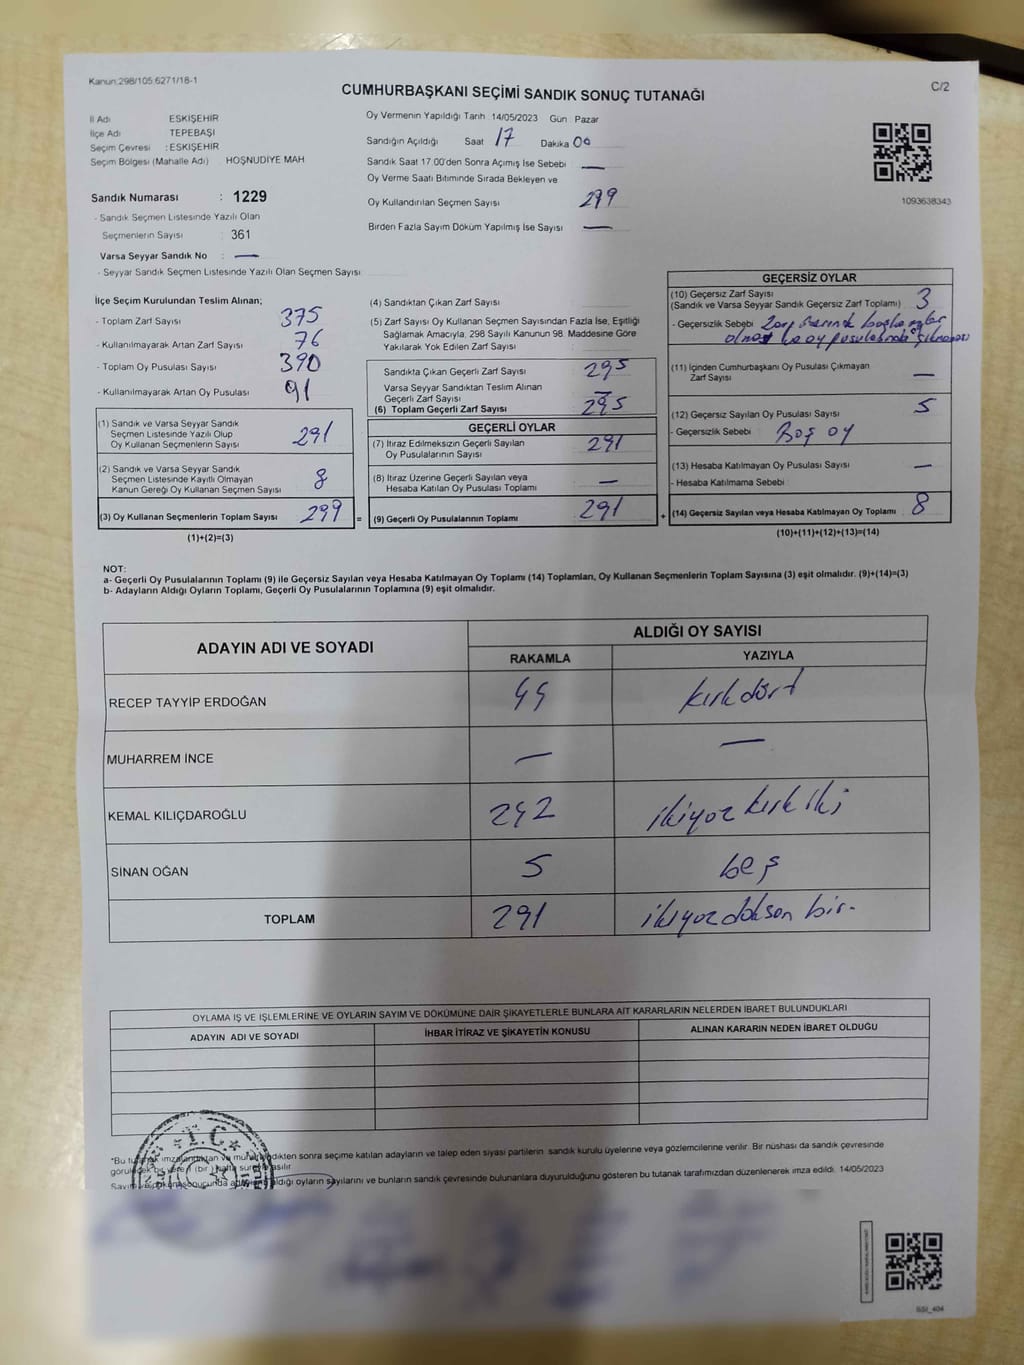 Kanun:298/105,6271/18-1
C/2
CUMHURBAŞKANI SEÇİMİ SANDIK SONUÇ TUTANAĞI
İl Adı ESKİŞEHİR
İlçe Adı TEPEBAŞI
Seçim Çevresi : ESKİŞEHİR
Seçim Bölgesi (Mahalle Adı) HOŞNUDİYE MAH
Sandık Numarası : 1229
- Sandık Seçmen Listesinde Yazılı Olan
Seçmenlerin Sayısı : 361
Varsa Seyyar Sandık No : —
- Seyyar Sandık Seçmen Listesinde Yazılı Olan Seçmen Sayısı
Oy Vermenin Yapıldığı Tarih 14/05/2023 Gün : Pazar
Sandığın Açıldığı Saat 17 Dakika 00
Sandık Saat 17.00'den Sonra Açılmış İse Sebebi —
Oy Verme Saati Bitiminde Sırada Bekleyen ve
Oy Kullandırılan Seçmen Sayısı 299
Birden Fazla Sayım Döküm Yapılmış İse Sayısı —
1093638343
İlçe Seçim Kurulundan Teslim Alınan;
- Toplam Zarf Sayısı 375
- Kullanılmayarak Artan Zarf Sayısı 76
- Toplam Oy Pusulası Sayısı 390
- Kullanılmayarak Artan Oy Pusulası 91
(1) Sandık ve Varsa Seyyar Sandık
Seçmen Listesinde Yazılı Olup
Oy Kullanan Seçmenlerin Sayısı 291
(2) Sandık ve Varsa Seyyar Sandık
Seçmen Listesinde Kayıtlı Olmayan
Kanun Gereği Oy Kullanan Seçmen Sayısı 8
(3) Oy Kullanan Seçmenlerin Toplam Sayısı 299 =
(1)+(2)=(3)
(4) Sandıktan Çıkan Zarf Sayısı
(5) Zarf Sayısı Oy Kullanan Seçmen Sayısından Fazla İse, Eşitliği
Sağlamak Amacıyla, 298 Sayılı Kanunun 98. Maddesine Göre
Yakılarak Yok Edilen Zarf Sayısı
Sandıkta Çıkan Geçerli Zarf Sayısı 295
Varsa Seyyar Sandıktan Teslim Alınan
Geçerli Zarf Sayısı —
(6) Toplam Geçerli Zarf Sayısı 295
GEÇERLİ OYLAR
(7) İtiraz Edilmeksizin Geçerli Sayılan
Oy Pusulalarının Sayısı 291
(8) İtiraz Üzerine Geçerli Sayılan veya
Hesaba Katılan Oy Pusulası Toplamı —
(9) Geçerli Oy Pusulalarının Toplamı 291 +
GEÇERSİZ OYLAR
(10) Geçersiz Zarf Sayısı
(Sandık ve Varsa Seyyar Sandık Geçersiz Zarf Toplamı) 3
- Geçersizlik Sebebi Zarf üzerinde
oy pusulasında
(11) İçinden Cumhurbaşkanı Oy Pusulası Çıkmayan
Zarf Sayısı —
(12) Geçersiz Sayılan Oy Pusulası Sayısı 5
- Geçersizlik Sebebi Boş oy
(13) Hesaba Katılmayan Oy Pusulası Sayısı —
- Hesaba Katılmama Sebebi
(14) Geçersiz Sayılan veya Hesaba Katılmayan Oy Toplamı 8
(10)+(11)+(12)+(13)=(14)
NOT:
a- Geçerli Oy Pusulalarının Toplamı (9) ile Geçersiz Sayılan veya Hesaba Katılmayan Oy Toplamı (14) Toplamları, Oy Kullanan Seçmenlerin Toplam Sayısına (3) eşit olmalıdır. (9)+(14)=(3)
b- Adayların Aldığı Oyların Toplamı, Geçerli Oy Pusulalarının Toplamına (9) eşit olmalıdır.
ADAYIN ADI VE SOYADI
ALDIĞI OY SAYISI
RAKAMLA YAZIYLA
RECEP TAYYİP ERDOĞAN 44 kırkdört
MUHARREM İNCE — —
KEMAL KILIÇDAROĞLU 242 ikiyüz kırk iki
SİNAN OĞAN 5 beş
TOPLAM 291 ikiyüz doksan bir.
OYLAMA İŞ VE İŞLEMLERİNE VE OYLARIN SAYIM VE DÖKÜMÜNE DAİR ŞİKAYETLERLE BUNLARA AİT KARARLARIN NELERDEN İBARET BULUNDUKLARI
ADAYIN ADI VE SOYADI İHBAR İTİRAZ VE ŞİKAYETİN KONUSU ALINAN KARARIN NEDEN İBARET OLDUĞU
T.C.
*Bu sonra seçime katılan adayların ve talep eden siyasi partilerin sandık kurulu üyelerine veya gözlemcilerine verilir. Bir nüshası da sandık çevresinde
(bir) hafta
aldığı oyların sayılarını ve bunların sandık çevresinde bulunanlara duyurulduğunu gösteren bu tutanak tarafımızdan düzenlenerek imza edildi. 14/05/2023
SSI_404